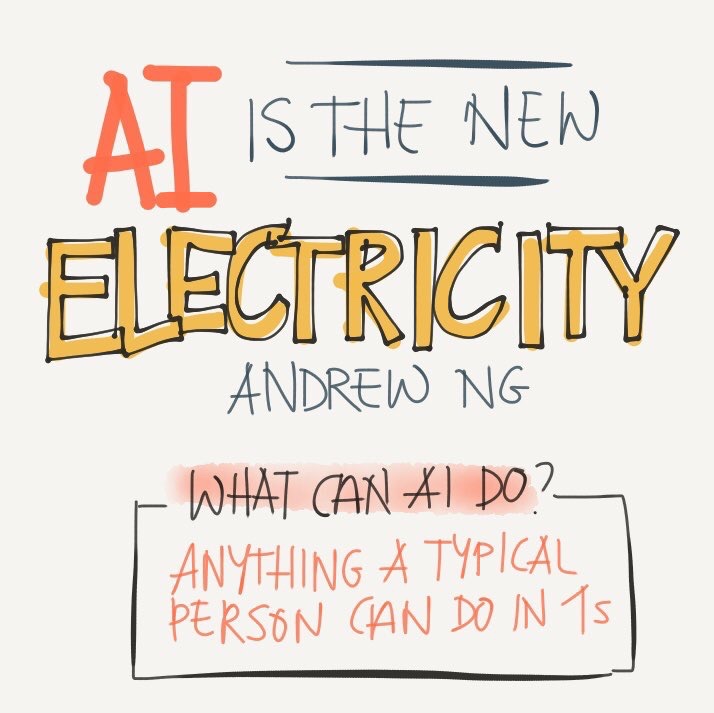 AI IS THE NEW
ELECTRICITY
ANDREW NG
WHAT CAN AI DO?
ANYTHING A TYPICAL
PERSON CAN DO IN 1s